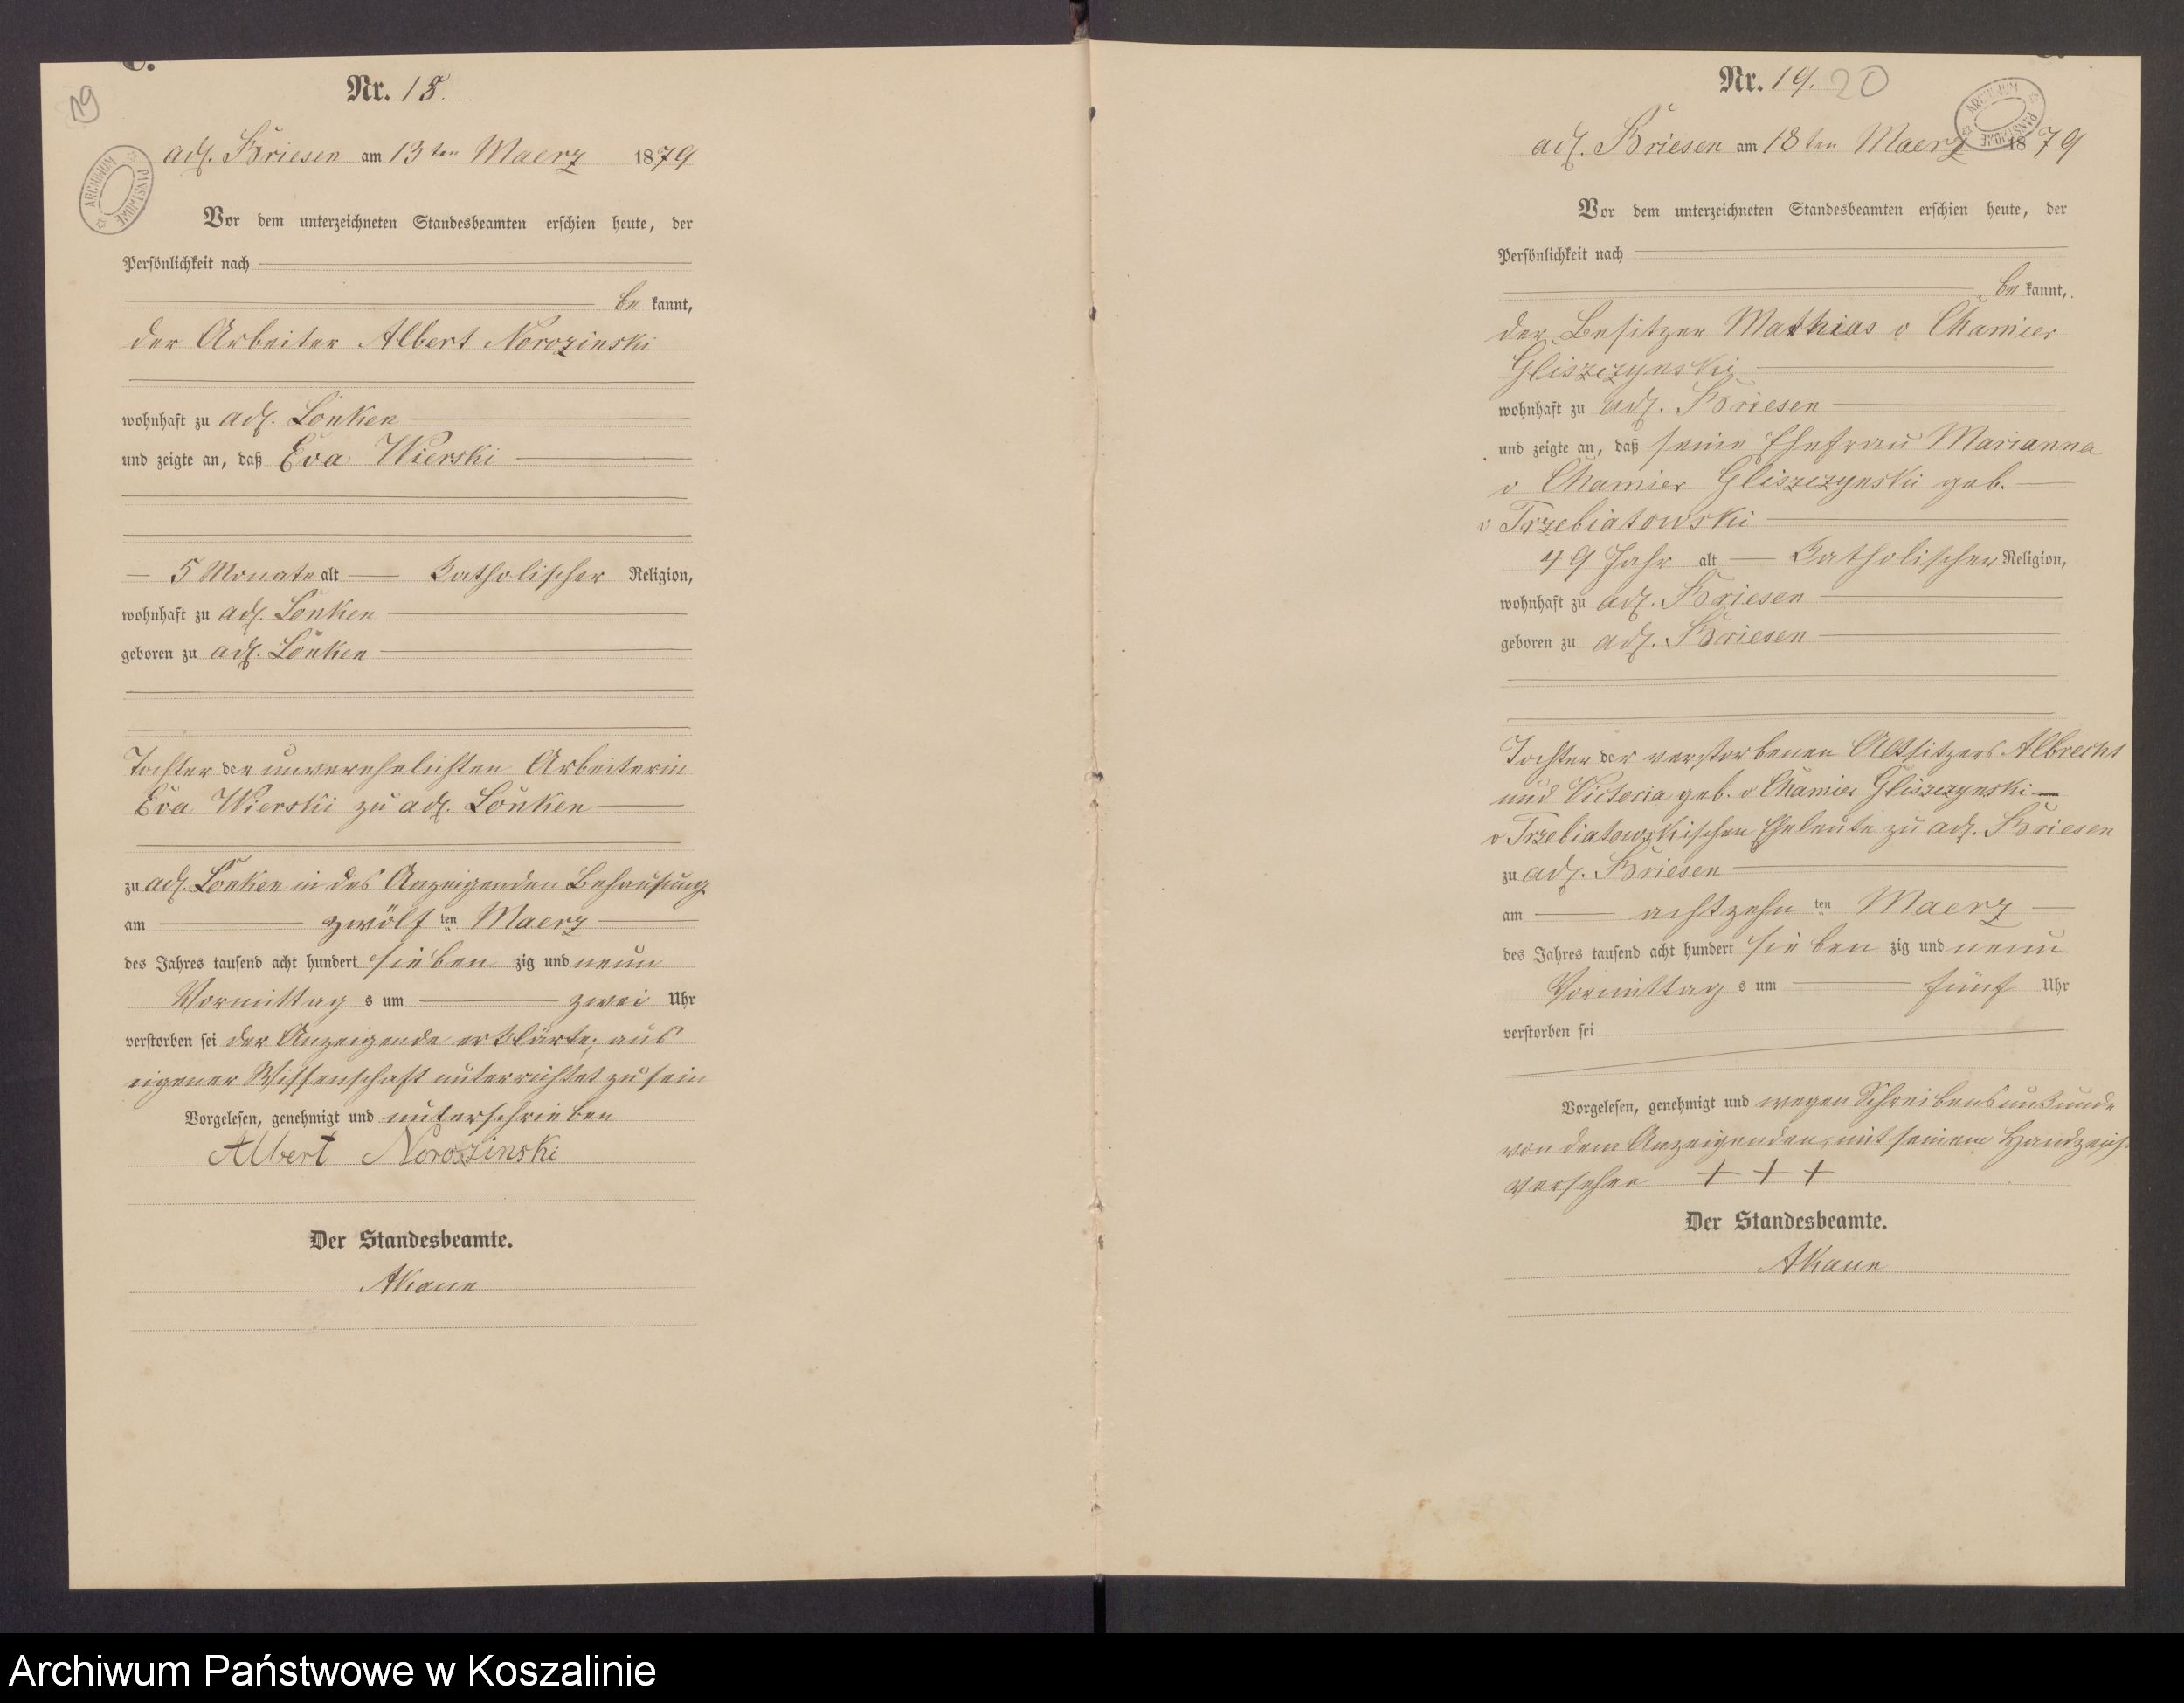 19
Nr. 18.
adl. Briesen am 13ten Maerz 1879
Vor dem unterzeichneten Standesbeamten erschien heute, der
Persönlichkeit nach
be kannt,
der Arbeiter Albert Norozinski
wohnhaft zu adl. Lonken
und zeigte an, daß Eva Wierski
5 Monate alt Katholischer Religion,
wohnhaft zu adl. Lonken
geboren zu adl. Lonken
Tochter der unverehelichten Arbeiterin
Eva Wierski zu adl. Lonken
zu adl. Lonken in des Anzeigenden Behausung
am zwölf ten Maerz
des Jahres tausend acht hundert sieben zig und neun
Vormittag s um zwei Uhr
verstorben sei der Anzeigende erklärte, aus
eigener Wissenschaft unterrichtet zu sein
Vorgelesen, genehmigt und unterschrieben
Albert Norozinski
Der Standesbeamte.
ARCHIWUM PAŃSTWOWE
Nr. 19. 20
adl. Briesen am 18ten Maerz 1879
ARCHIWUM PAŃSTWOWE
Vor dem unterzeichneten Standesbeamten erschien heute, der
Persönlichkeit nach
be kannt,
der Besitzer Mathias v Chamier
Gliszczynski
wohnhaft zu adl. Briesen
und zeigte an, daß seine Ehefrau Marianna
v Chamier Gliszczynski geb.
v Trzebiatowski
49 Jahr alt Katholischer Religion,
wohnhaft zu adl. Briesen
geboren zu adl. Briesen
Tochter der verstorbenen Altsitzers Albrecht
und Victoria geb. v Chamier Gliszczynski
v Trzebiatowskischen Eheleute zu adl. Briesen
zu adl. Briesen
am achtzehn ten Maerz
des Jahres tausend acht hundert sieben zig und neun
Vormittag s um fünf Uhr
verstorben sei
Vorgelesen, genehmigt und wegen Schreibensunkunde
von dem Anzeigenden, mit seinem Handzeich
versehen + + +
Der Standesbeamte.
Archiwum Państwowe w Koszalinie